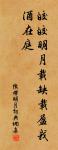 皎皎明月載缺載盈我
酒在庭